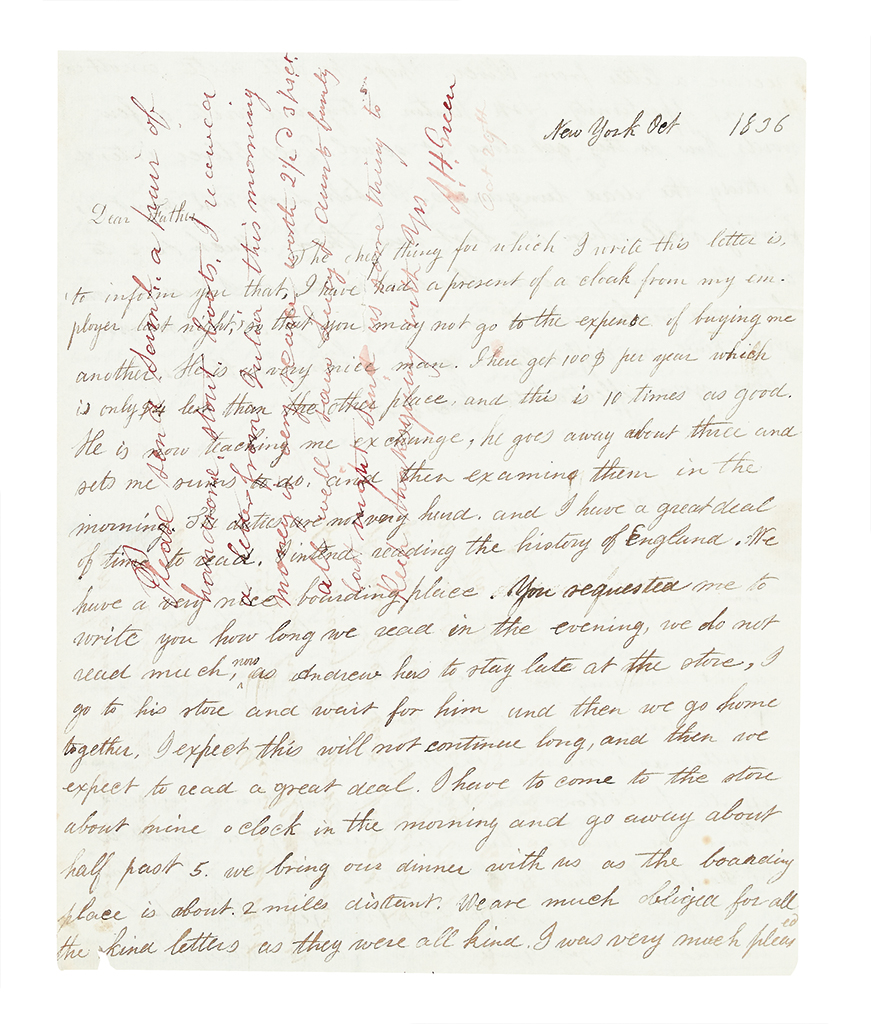 New York Oct 1836
Dear Father
The chief thing for which I write this letter is,
to inform you that, I have had a present of a cloak from my em-
ployer last night, so that you may not go to the expense of buying me
another. He is a very nice man. I here get 100$ per year which
is only less than the other place, and this is 10 times as good.
He is now teaching me exchange, he goes away about three and
sets me sums to do, and then examines them in the
morning. The duties are not very heard. and I have a great deal
of time to read. I intend reading the history of England. We
have a very nice boarding place. You requested me to
write you how long we read in the evening, we do not
read much, now as Andrew has to stay late at the store, I
go to his store and wait for him and then we go home
together, I expect this will not continue long, and then we
expect to read a great deal. I have to come to the store
about nine o clock in the morning and go away about
half past 5. we bring our dinner with us as the boarding
place is about 2 miles distant. We are much obliged for all
the kind letters as they were all kind. I was very much pleased
Please send Saml. a pair of
handsome stout boots, I received
a letter from Julia this morning
money is very scarce worth 2½ d pr ct.
all well saw Lucy aunts family
last night, Send us some thing to
Keep thanksgiving with Yrs
A. H. Green
Oct 29th